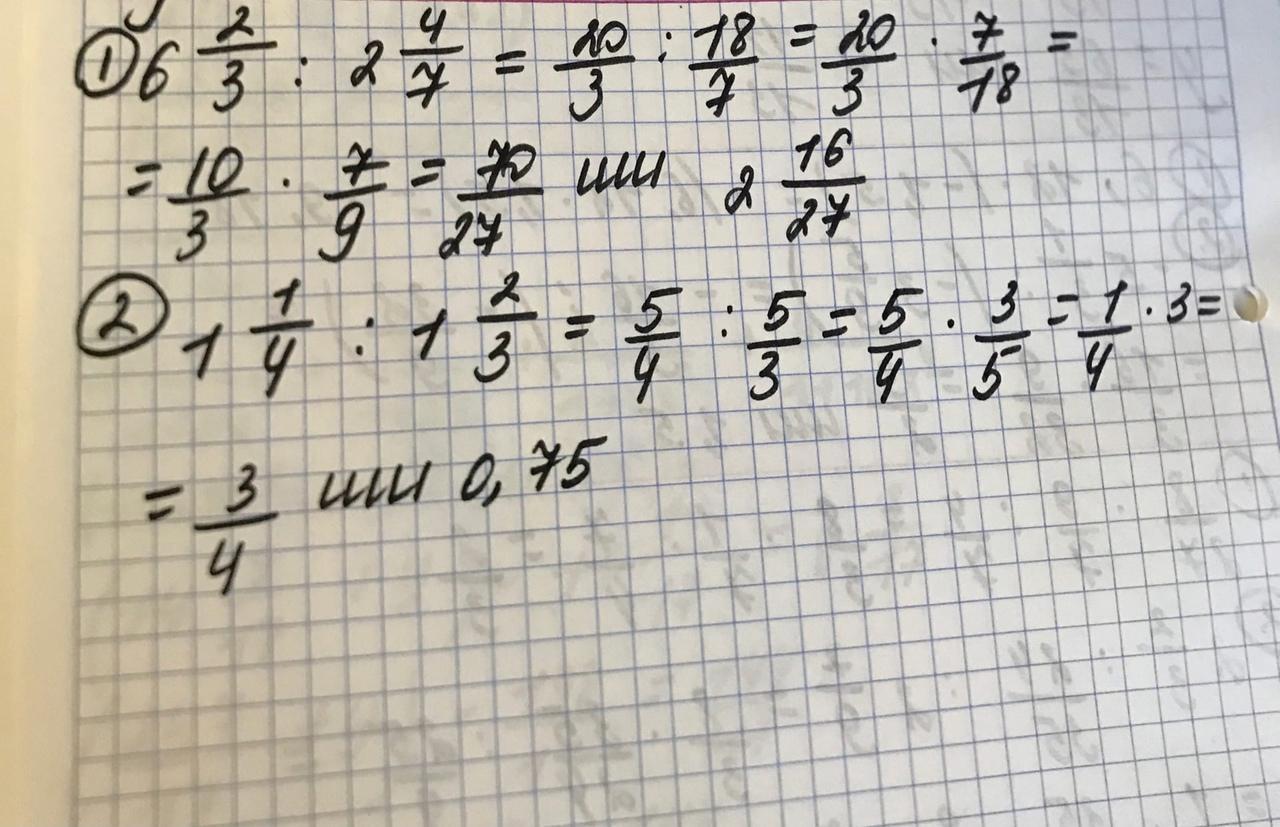 ① 6 2/3 : 2 4/7 = 20/3 : 18/7 = 20/3 · 7/18 =
= 10/3 · 7/9 = 70/27 или 2 16/27
② 1 1/4 : 1 2/3 = 5/4 : 5/3 = 5/4 · 3/5 = 1/4 · 3 =
= 3/4 или 0,75